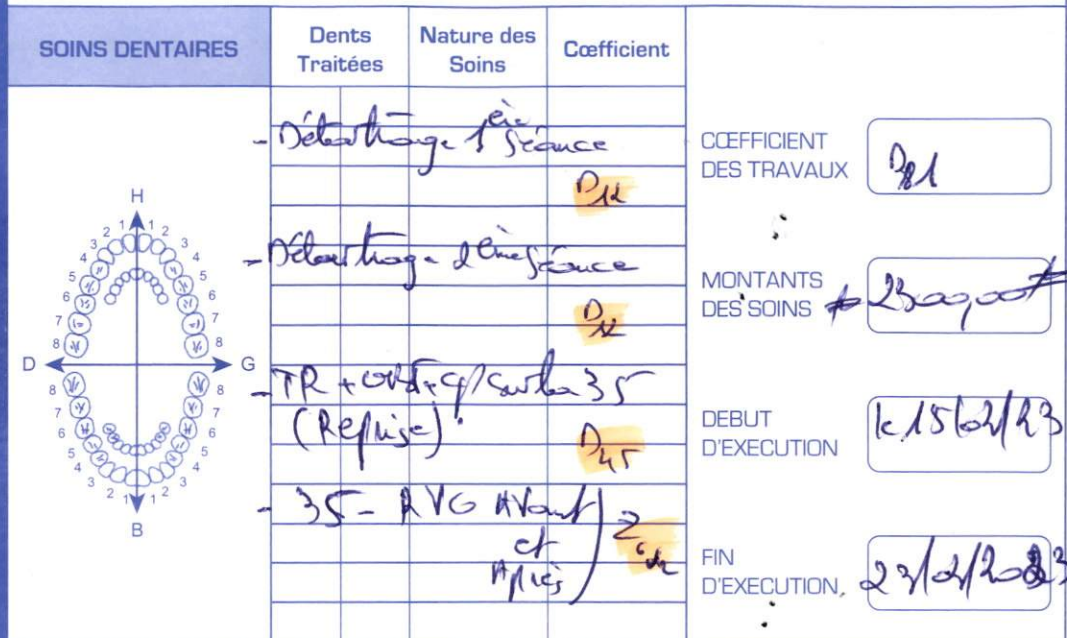 SOINS DENTAIRES
Dents Traitées
Nature des Soins
Cœfficient
- Détartrage 1ère Séance
D12
- Détartrage 2ème Séance
D12
- TR + sur la 35
(Reprise).
D45
- 35 - RVG Avant
et
Après
Z
H
D
G
B
8 7 6 5 4 3 2 1 1 2 3 4 5 6 7 8
8 7 6 5 4 3 2 1 1 2 3 4 5 6 7 8
CŒFFICIENT
DES TRAVAUX
D81
MONTANTS
DES SOINS
# 2300,00 #
DEBUT
D'EXECUTION
le 15/02/23
FIN
D'EXECUTION
23/2/2023